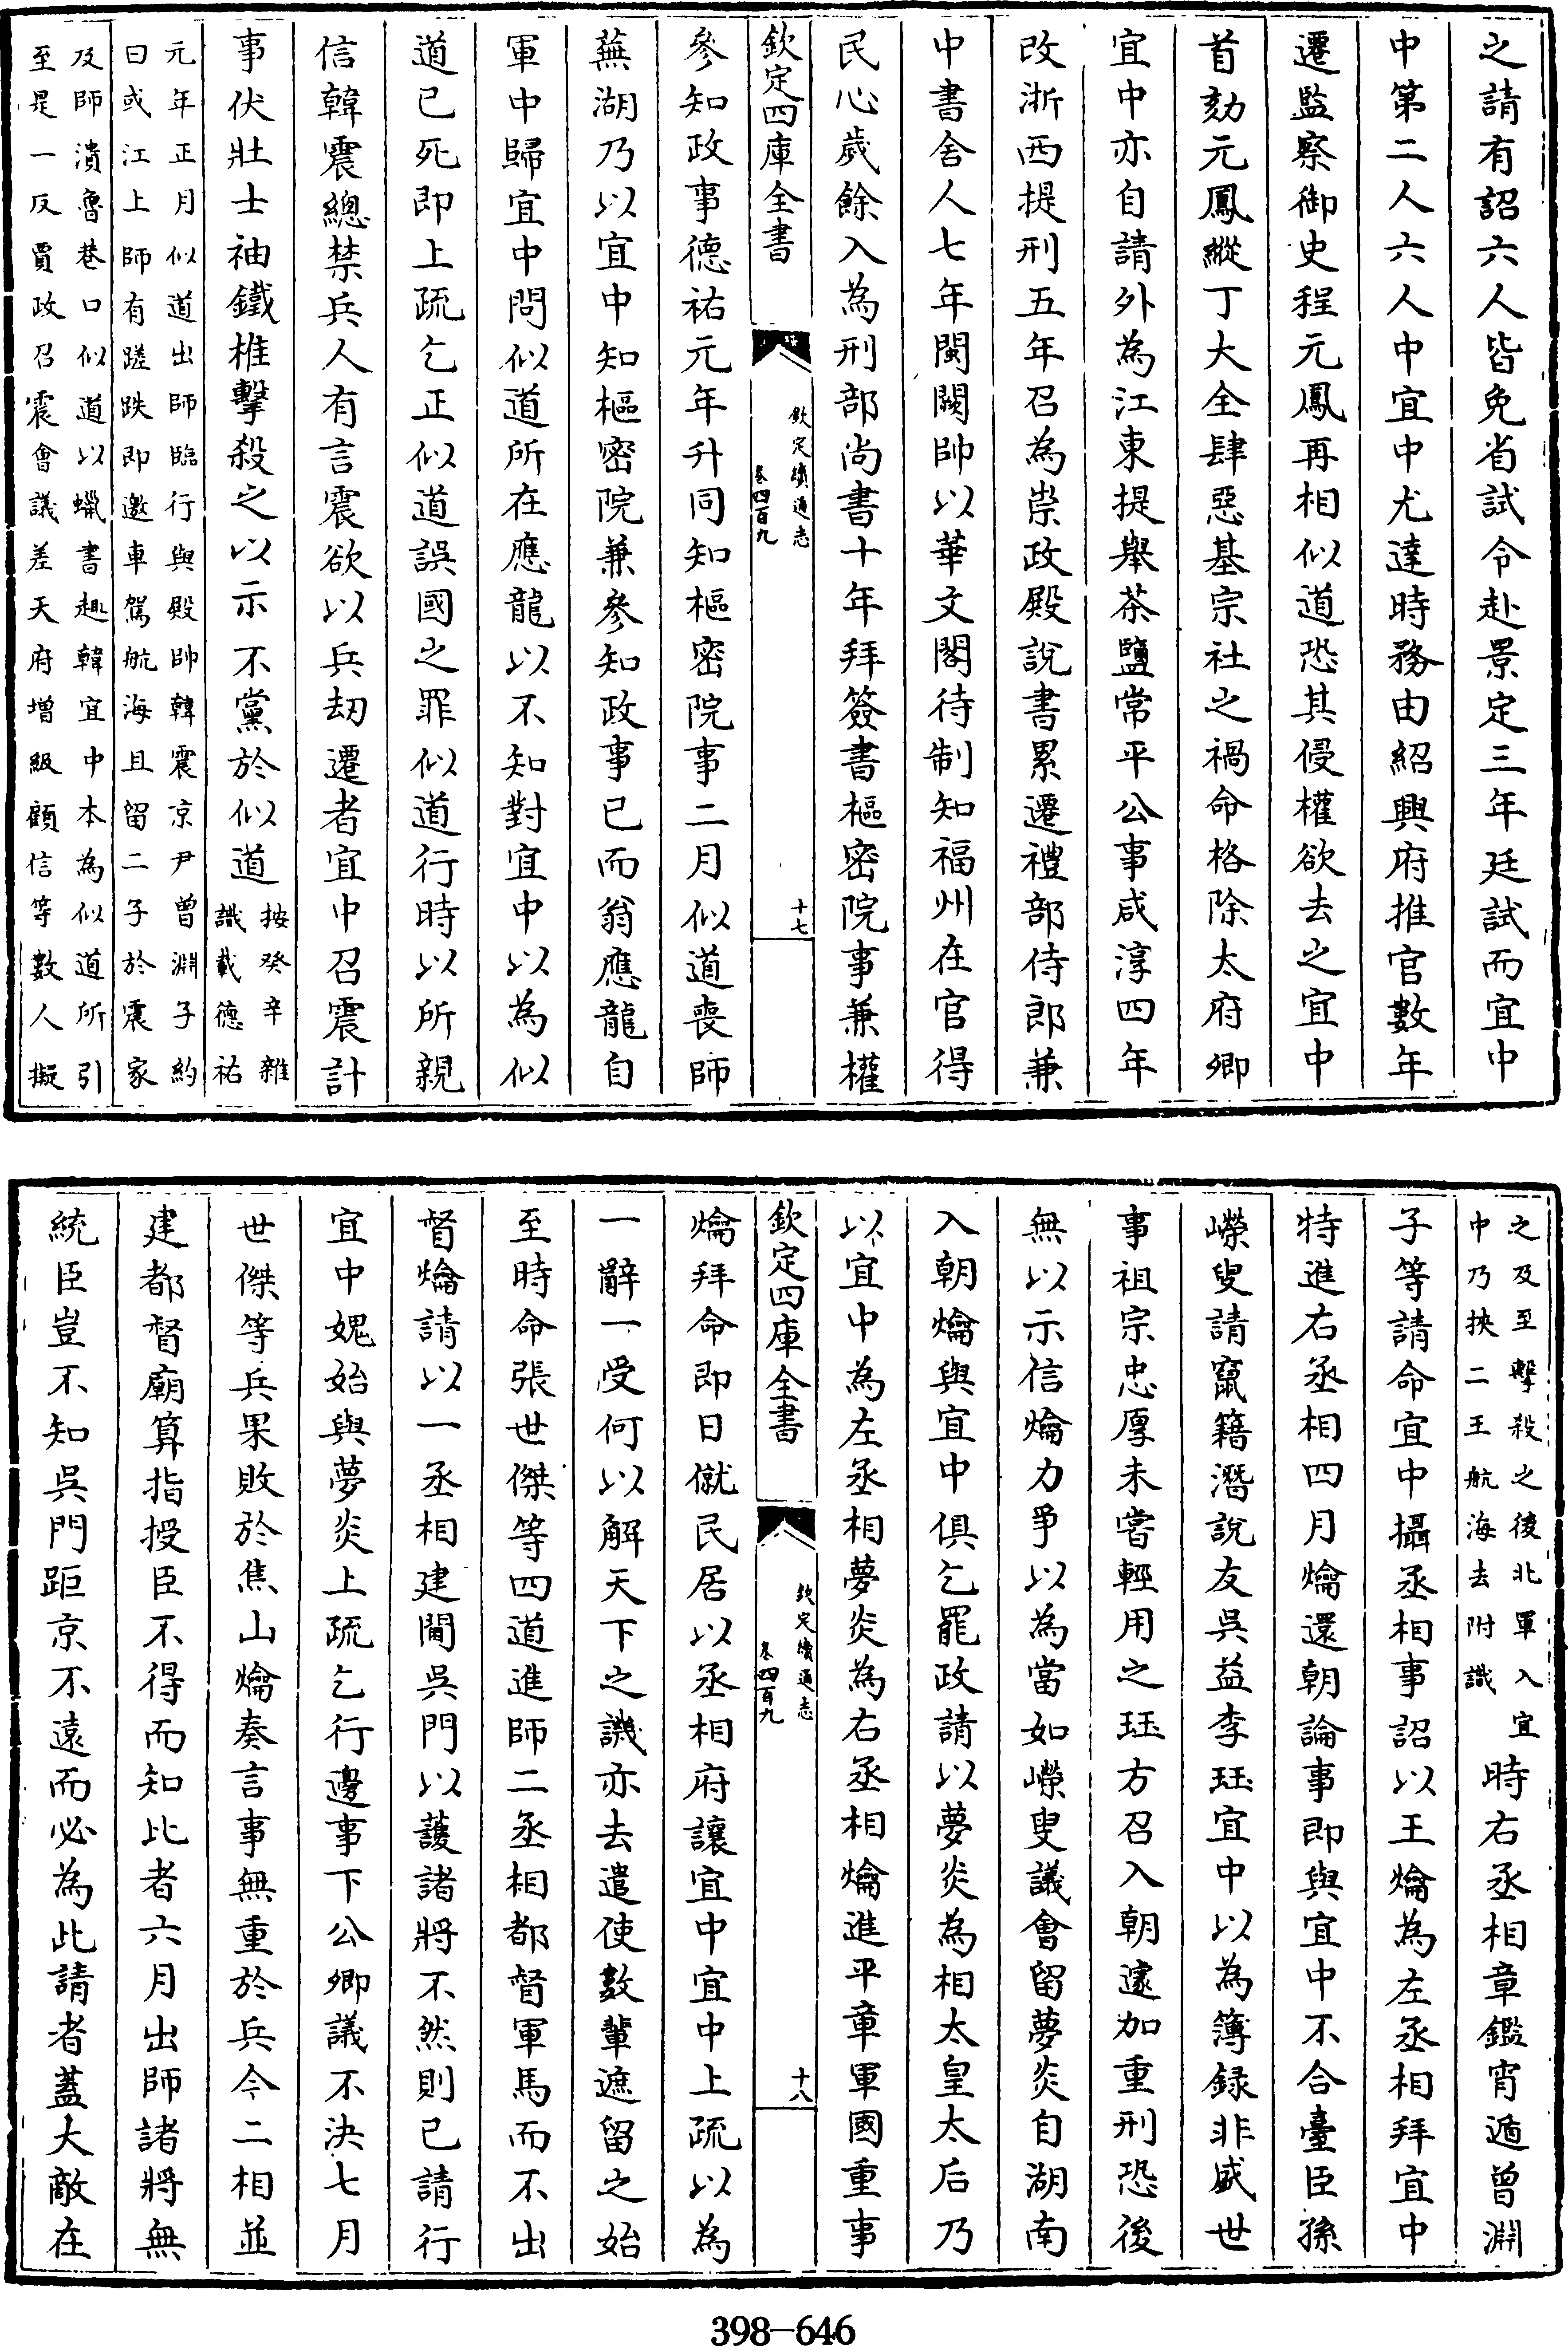 之請有詔六人皆免省試令赴景定三年廷試而宜中
中第二人六人中宜中尤達時務由紹興府推官數年
遷監察御史程元鳳再相似道恐其侵權欲去之宜中
首劾元鳳縱丁大全肆惡基宗社之禍命格除太府卿
宜中亦自請外為江東提舉茶鹽常平公事咸淳四年
改浙西提刑五年召為崇政殿說書累遷禮部侍郎兼
中書舍人七年閩闕帥以華文閣待制知福州在官得
民心歲餘入為刑部尚書十年拜簽書樞密院事兼權
欽定四庫全書
欽定續通志
卷四百九
十七
參知政事德祐元年升同知樞密院事二月似道喪師
蕪湖乃以宜中知樞密院兼參知政事已而翁應龍自
軍中歸宜中問似道所在應龍以不知對宜中以為似
道已死即上疏乞正似道誤國之罪似道行時以所親
信韓震總禁兵人有言震欲以兵劫遷者宜中召震計
事伏壯士袖鐵椎擊殺之以示不黨於似道
按癸辛雜
識載德祐
元年正月似道出師臨行與殿帥韓震京尹曾淵子約
曰或江上師有蹉跌即邀車駕航海且留二子於震家
及師潰魯巷口似道以蠟書趣韓宜中本為似道所引
至是一反賈政召震會議差天府增級顧信等數人擬
之及至擊殺之後北軍入宜
中乃挾二王航海去附識
時右丞相章鑑宵遁曾淵
子等請命宜中攝丞相事詔以王爚為左丞相拜宜中
特進右丞相四月爚還朝論事即與宜中不合臺臣孫
嶸叟請竄籍潛說友吳益李珏宜中以為簿録非盛世
事祖宗忠厚未嘗輕用之珏方召入朝遽加重刑恐後
無以示信爚力爭以為當如嶸叟議會留夢炎自湖南
入朝爚與宜中俱乞罷政請以夢炎為相太皇太后乃
以宜中為左丞相夢炎為右丞相爚進平章軍國重事
欽定四庫全書
欽定續通志
卷四百九
十八
爚拜命即日僦民居以丞相府讓宜中宜中上疏以為
一辭一受何以解天下之譏亦去遣使數輩遮留之始
至時命張世傑等四道進師二丞相都督軍馬而不出
督爚請以一丞相建閫吳門以護諸將不然則已請行
宜中媿始與夢炎上疏乞行邊事下公卿議不決七月
世傑等兵果敗於焦山爚奏言事無重於兵今二相並
建都督廟算指授臣不得而知比者六月出師諸將無
統臣豈不知吳門距京不遠而必為此請者蓋大敵在
398-646